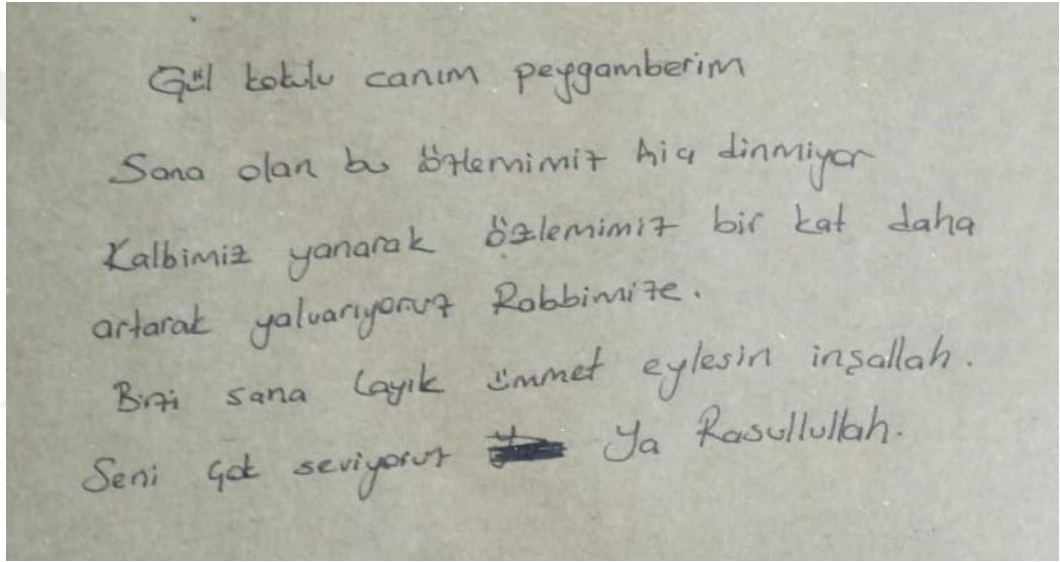 Gül kokulu canım peygamberim
Sana olan bu özlemimiz hiç dinmiyor
Kalbimiz yanarak özlemimiz bir kat daha
artarak yalvarıyoruz Rabbimize.
Bizi sana layık ümmet eylesin inşallah.
Seni çok seviyoruz Ya Rasullullah.